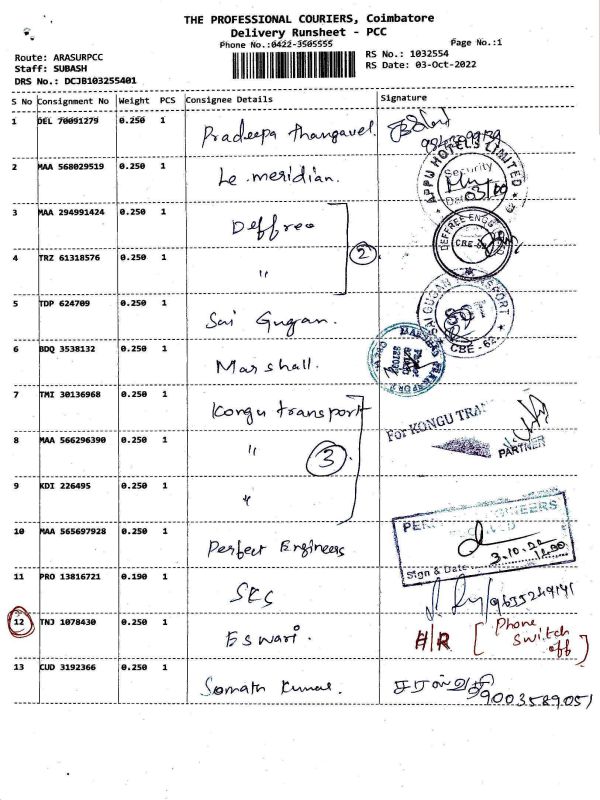 THE PROFESSIONAL COURIERS, Coimbatore
Delivery Runsheet - PCC
Phone No.:0422-3505555 Page No.:1
Route: ARASURPCC RS No.: 1032554
Staff: SUBASH RS Date: 03-Oct-2022
DRS No.: DCJB103255401
S No Consignment No Weight PCS Consignee Details Signature
1 DEL 70091279 0.250 1 Pradeepa Thangavel
2 MAA 568029519 0.250 1 Le meridian. APPU HOTELS LIMITED Security
3 MAA 294991424 0.250 1 Deffree DEFFREE ENGG CBE-62
4 TRZ 61318576 0.250 1 " 2
5 TDP 624709 0.250 1 Sai Gugan. SAI GUGAN TRANSPORT CBE-62
6 BDQ 3538132 0.250 1 Marshall.
7 TMI 30136968 0.250 1 Kongu transport For KONGU TRA
8 MAA 566296390 0.250 1 " 3 PARTNER
9 KDI 226495 0.250 1 "
10 MAA 565697928 0.250 1 Perfect Engineers Sign & Date 3.10.22
11 PRO 13816721 0.190 1 SES
12 TNJ 1078430 0.250 1 Eswari. H/R [Phone Switch off]
13 CUD 3192366 0.250 1 Kumar. சரஸ்வதி 9003589051